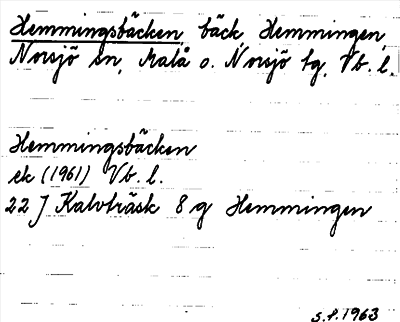 Hemmingsbäcken, bäck Hemmingen,
Norsjö sn, Malå o. Norsjö tg, Vb. l.
Hemmingsbäcken
ek (1961) Vb. l.
22 J Kalvträsk 8 g Hemmingen
S.f. 1963